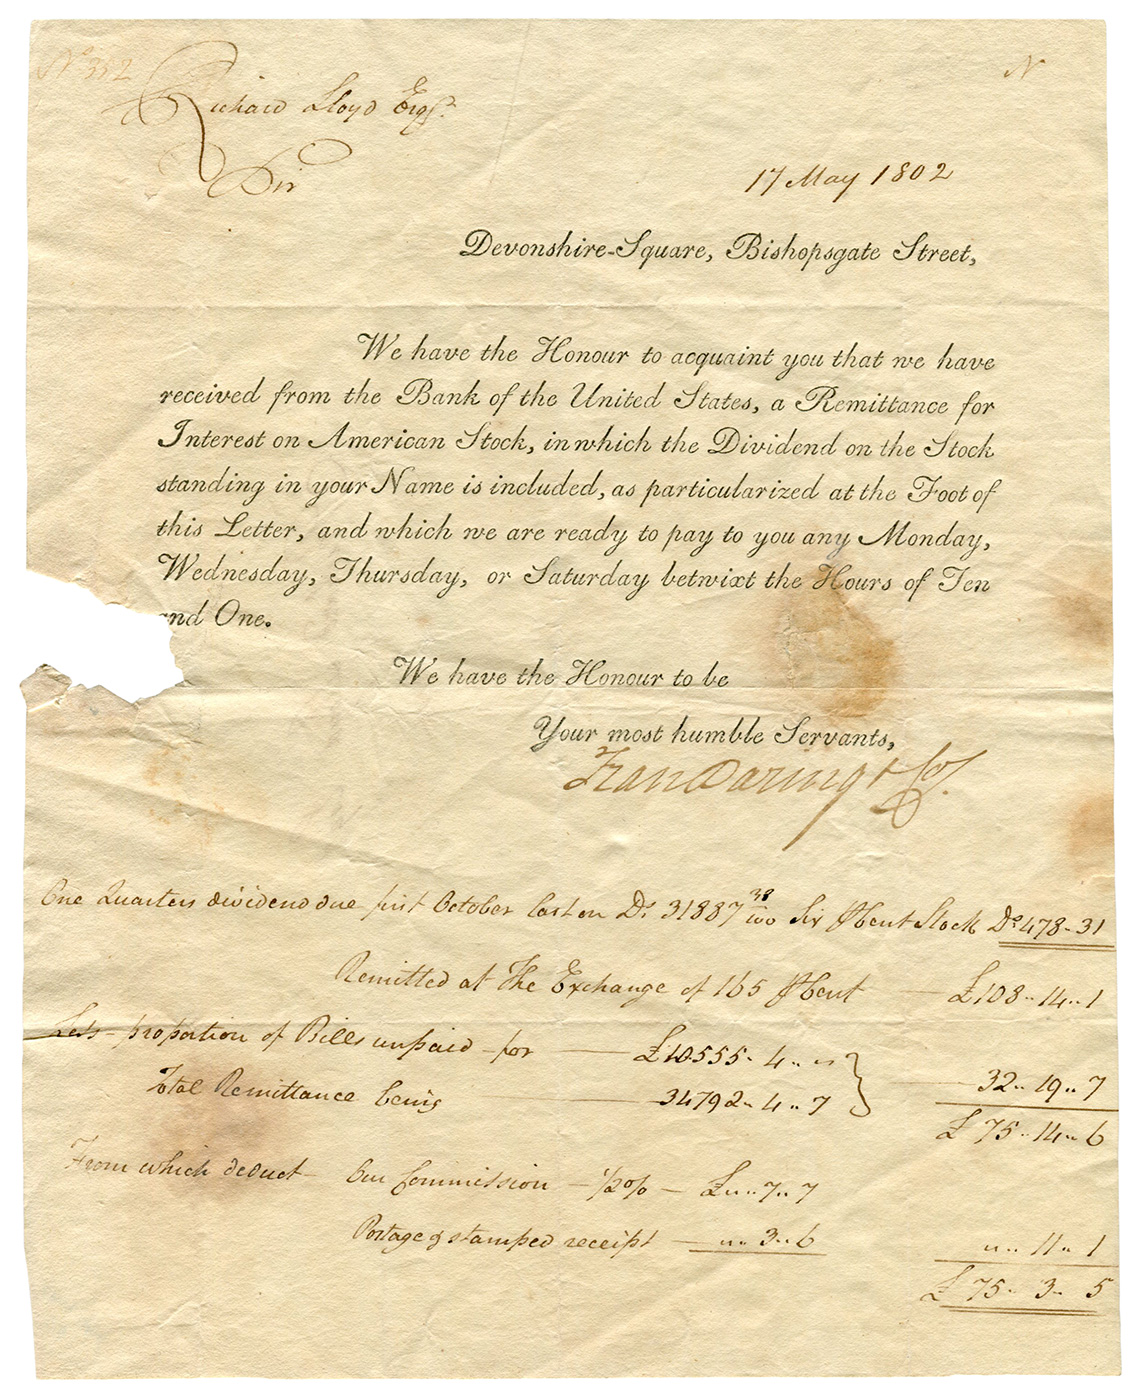 No 352
N
Richard Lloyd Esqr.
Sir
17 May 1802
Devonshire-Square, Bishopsgate Street,
We have the Honour to acquaint you that we have
received from the Bank of the United States, a Remittance for
Interest on American Stock, in which the Dividend on the Stock
standing in your Name is included, as particularized at the Foot of
this Letter, and which we are ready to pay to you any Monday,
Wednesday, Thursday, or Saturday betwixt the Hours of Ten
and One.
We have the Honour to be
Your most humble Servants,
Fran Baring & Co.
One Quarters dividend due first October last on Ds 31887 38/100 Six ⅌Cent Stock Ds 478-31
Remitted at the Exchange of 165 ⅌Cent — £108..14..1
Less proportion of Bills unpaid for — £10555..4..〃 } 32..19..7
Total Remittance being — 34792..4..7
£ 75..14..6
From which deduct Our Commission — 1/2 % — £〃..7..7
Postage & stamped receipt — 〃..3..6 〃..11..1
£ 75..3..5